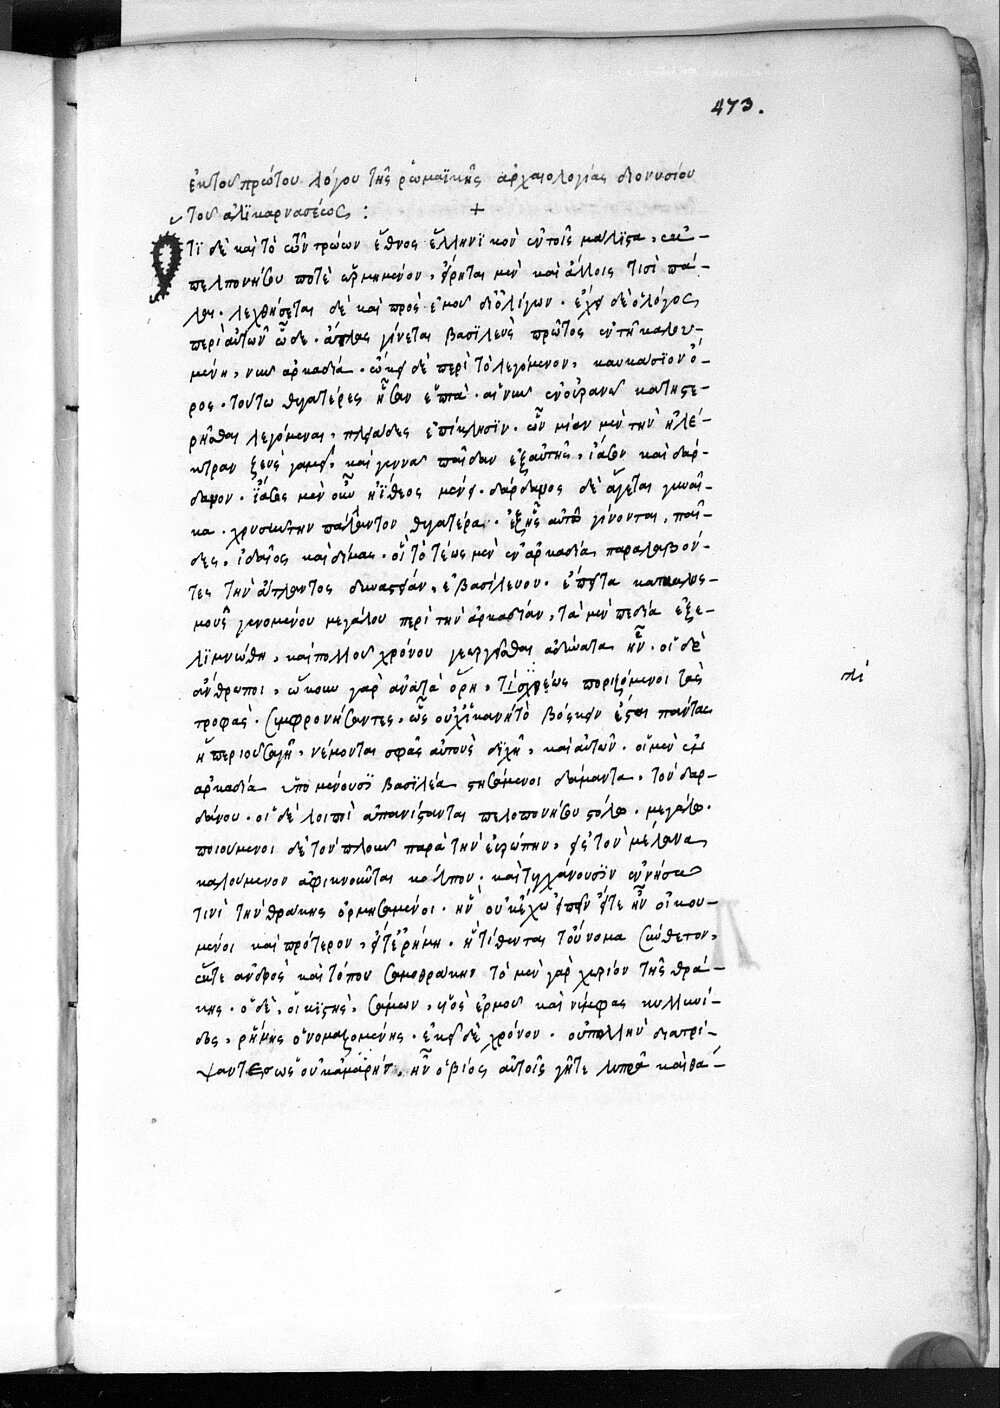 473.
ἐκ τοῦ πρώτου λόγου τῆς ῥωμαϊκῆς ἀρχαιολογίας διονυσίου
τοῦ ἁλικαρνασέως : +
Ὅτι δὲ καὶ τὸ τῶν τρώων ἔθνος ἑλληνικὸν ἐν τοῖς μάλιστα, ἐκ
πελοπονήσου ποτὲ ὡρμημένον, εἴρηται μὲν καὶ ἄλλοις τισὶ πά-
λαι. λεχθήσεται δὲ καὶ πρὸς ἐμοῦ δι' ὀλίγων. ἔχει δὲ ὁ λόγος
περὶ αὐτῶν ὧδε. ἄτλας γίνεται βασιλεὺς πρῶτος ἐν τῇ καλου-
μένῃ, νῦν ἀρκαδία. ᾤκει δὲ περὶ τὸ λεγόμενον, καυκάσιον ὄ-
ρος. τούτω θυγατέρες ἦσαν ἑπτὰ. αἱ νῦν ἐν οὐρανῶ κατηστε-
ρῆσθαι λεγόμεναι, πλειάδες ἐπίκλησιν. ὧν μίαν μὲν τὴν ἠλέ-
κτραν ζεὺς γαμεῖ, καὶ γεννᾶ παῖδας ἐξ αὐτῆς, ἴασον καὶ δάρ-
δανον. ἴασος μὲν οὖν ἠΐθεος μένει. δάρδανος δὲ ἄγεται γυναῖ-
κα. χρυσὴν τὴν παλλαντος θυγατέρα. ἐξ ἧς αὐτῶ γίνονται, παῖ-
δες, ἰδαῖος καὶ δίμας. οἳ τὸ τέως μὲν ἐν ἀρκαδία παραλαβόν-
τες τὴν ἄτλαντος δυναστείαν, ἐβασίλευον. ἔπειτα κατακλυσ-
μοῦ γενομένου μεγάλου περὶ τὴν ἀρκαδίαν, τὰ μὲν πεδία ἐξε-
λιμνώθη, καὶ πολλοῦ χρόνου γεωργεῖσθαι ἀδύνατα ἦν. οἱ δὲ
ἄνθρωποι, ὤκουν γὰρ ἀνὰ τὰ ὄρη, γλίσχρως ποριζόμενοι τὰς
τροφὰς. συμφρονήσαντες, ὡς οὐχ ἱκανὴ τὸ βόσκειν ἔσται πάντας
ἡ περιοῦσα γῆ, νέμονται σφᾶς αὐτοὺς διχῆ, καὶ αὐτῶν. οἱ μὲν ἐν
ἀρκαδία ὑπομένουσι βασιλέα στησάμενοι δίμαντα, τὸν δαρ-
δάνου. οἱ δὲ λοιποὶ ἀπανίστανται πελοπονήσου στόλω. μεγάλω.
ποιουμένοι δὲ τὸν πλοῦν παρὰ τὴν εὐρώπην, εἰς τὸν μέλανα
καλούμενον ἀφικνοῦνται κόλπον. καὶ τυγχάνουσιν ἐν νήσω
τινὶ τῆς θράκης ὁρμησάμενοι. ἣν οὐκ ἔχω εἰπεῖν εἴτε ἦν οἰκου-
μένοι καὶ πρότερον, εἴτ' ἐρήμη. ᾗ τίθενται τοὔνομα σύνθετον,
ἔκτε ἀνδρὸς καὶ τόπου σαμοθράκην τὸ μὲν γὰρ χωρίον τῆς θρά-
κης. ὁ δὲ, οἰκιστὴς, σάμων, υἱὸς ἑρμοῦ καὶ νύμφας κυλλωνί-
δος, ῥήνης ὀνομαζομένης. ἐκεῖ δὲ χρόνον. οὐ πολλὴν διατρί-
ψαντες ὡς οὐκ
ἦν ὁ βίος αὐτοῖς γῆτε λυπρᾶ καὶ θα-